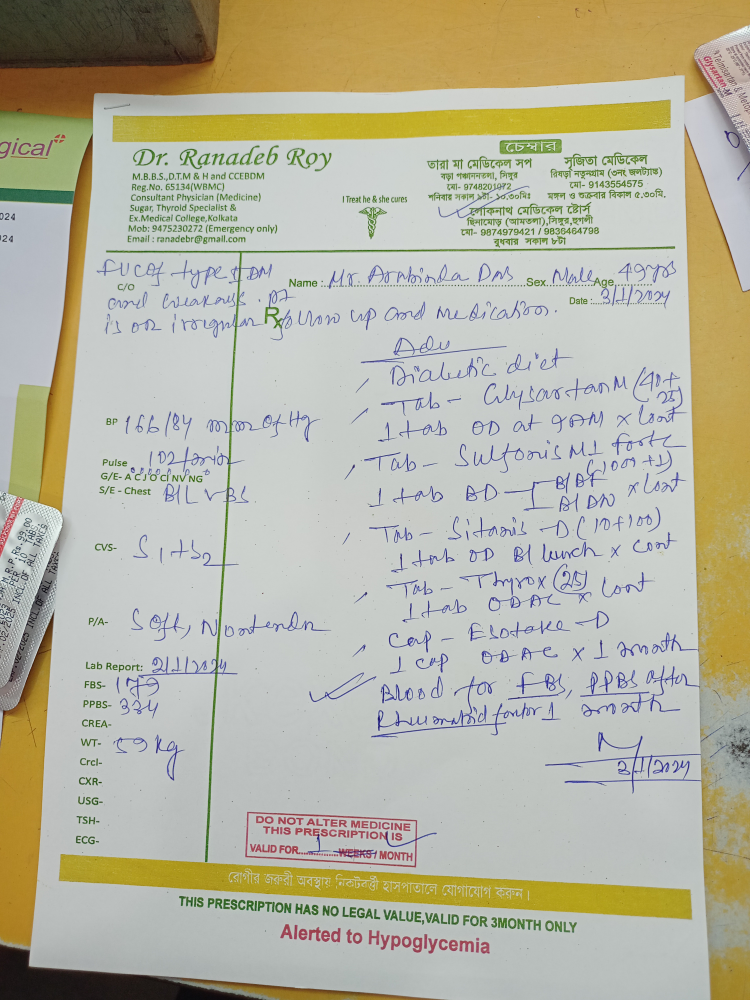 Dr. Ranadeb Roy
M.B.B.S.,D.T.M & H and CCEBDM
Reg.No. 65134(WBMC)
Consultant Physician (Medicine)
Sugar, Thyroid Specialist &
Ex.Medical College,Kolkata
Mob: 9475230272 (Emergency only)
Email : ranadebr@gmail.com
I Treat he & she cures
চেম্বার
তারা মা মেডিকেল সপ
বড়া পঞ্চাননতলা, সিঙ্গুর
মো- 9748201972
শনিবার সকাল ৯টা- ১০.৩০মিঃ
সৃজিতা মেডিকেল
রিষড়া নতুনগ্রাম (৩নং জলট্যাঙ্ক)
মো- 9143554575
মঙ্গল ও শুক্রবার বিকাল ৫.৩০মি.
লোকনাথ মেডিকেল ষ্টোর্স
ছিনামোড় (আমতলা),সিঙ্গুর,হুগলী
মো- 9874979421 / 9836464798
বুধবার সকাল ৮টা
FUC of type II DM
C/O
and weakness. pt
is on irregular follow up and medication.
Name : Mr. Arabinda Das Sex Male Age 49yrs
Date : 3/1/2024
Rx
Adv
Diabetic diet
Tab - Glysartan M (40+25)
1 tab OD at 9AM x Cont
Tab - Sulfonis M1 forte (1000+1)
1 tab BD - 1 B/BF 1 B/DN x Cont
Tab - Sitanis - D (10+100)
1 tab OD B/lunch x Cont
Tab - Thyrox (25)
1 tab ODAC x Cont
Cap - Esotake - D
1 cap ODAC x 1 month
Blood for FBS, PPBS after
Rheumatoid factor 1 month
3/1/2024
BP 166/84 mm of Hg
Pulse 102/min
G/E- A C J O Cl NV NG
S/E - Chest B/L VBS
CVS- S1+S2
P/A- Soft, Nontender
Lab Report: 2/1/2024
FBS- 179
PPBS- 334
CREA-
WT- 59 kg
Crcl-
CXR-
USG-
TSH-
ECG-
DO NOT ALTER MEDICINE
THIS PRESCRIPTION IS
VALID FOR 1 WEEKS / MONTH
রোগীর জরুরী অবস্থায় নিকটবর্ত্তী হাসপাতালে যোগাযোগ করুন।
THIS PRESCRIPTION HAS NO LEGAL VALUE,VALID FOR 3MONTH ONLY
Alerted to Hypoglycemia
gical
024
2024
Glysartan-M